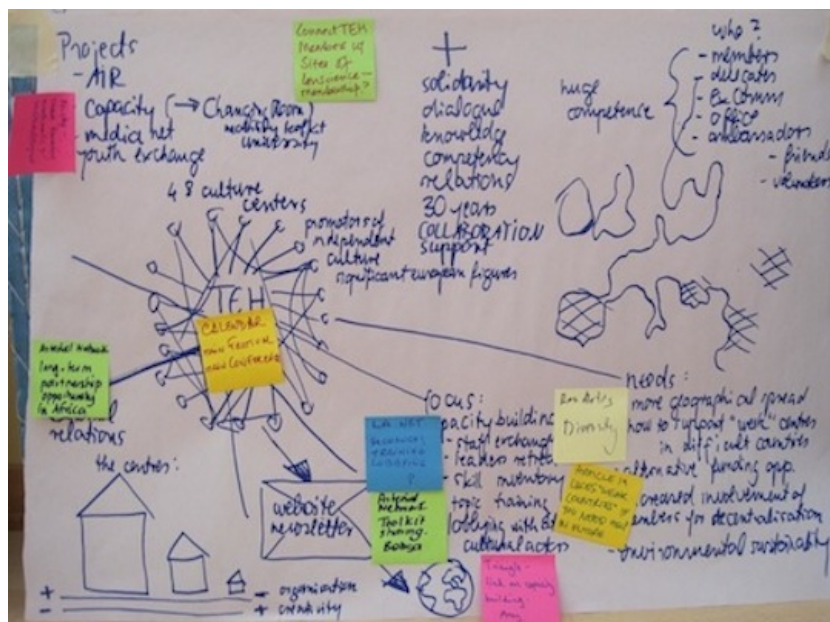 Projects
- AIR
- Capacity (→ Changing Room)
mobility toolkit
university
- media net
youth exchange
Connect TEH
Members w/
Sites of
Conscience –
membership?
+
solidarity
dialogue
knowledg
competency
relations
30 years
COLLABORATION
support
huge
competence
who?
- members
- delegates
- Ex Comm
- office
- ambassadors
- friends
- volunteers
48 culture
centers
promotors of
independent
culture
significant european figures
TEH
CALENDAR
Arterial Network
long-term
partnership
opportunity
in Africa
relations
the centres:
+
-
- organisation
+ creativity
website
newsletter
focus:
capacity building
- staff exchange
- leaders retreat
- skill inventory
topic training
lobbying with
cultural actors
TRAINING
?
Arterial
Network
Toolkit
sharing.
Diversity
needs:
more geographical spread
how to support "weak" centres
in difficult countries
alternative funding opp.
increased involvement of
members for decentralisation
- environmental sustainability
ARTICLE 19
COUNTRIES
Triangle -
link on capacity
building.